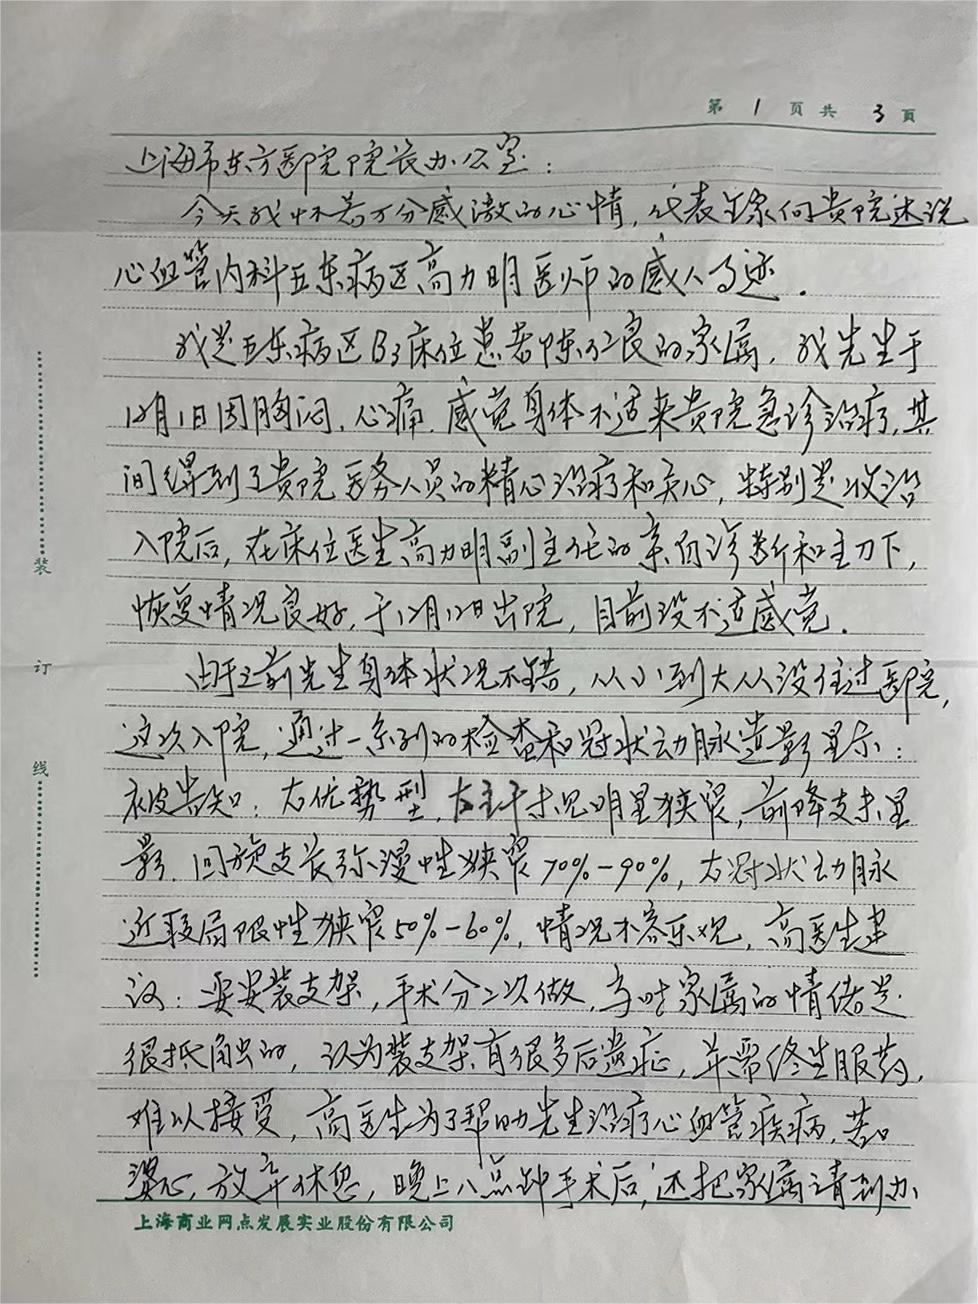 第 1 页 共 3 页
上海市东方医院院长办公室：
今天我怀着万分感激的心情，代表全家向贵院述说
心血管内科五东病区高力明医师的感人事迹.
我是五东病区B3床位患者陈仁良的家属，我先生于
12月1日因胸闷、心痛、感觉身体不适来贵院急诊治疗，其
间得到了贵院医务人员的精心治疗和关心，特别是收治
入院后，在床位医生高力明副主任的亲自诊断和主刀下，
恢复情况良好，于12月12日出院，目前没不适感觉.
由于之前先生身体状况不错，从小到大从没住过医院，
这次入院，通过一系列的检查和冠状动脉造影显示：
被告知：右优势型，左主干未见明显狭窄，前降支未显
影、回旋支长弥漫性狭窄70%-90%，右冠状动脉
近段局限性狭窄50%-60%，情况不容乐观，高医生建
议：要安装支架，手术分二次做，当时家属的情绪是
很抵触的，认为装支架有很多后遗症，并需终生服药，
难以接受，高医生为了帮助先生治疗心血管疾病，苦口
婆心，放弃休息，晚上八点钟手术后，还把家属请到办
装
订
线
上海商业网点发展实业股份有限公司